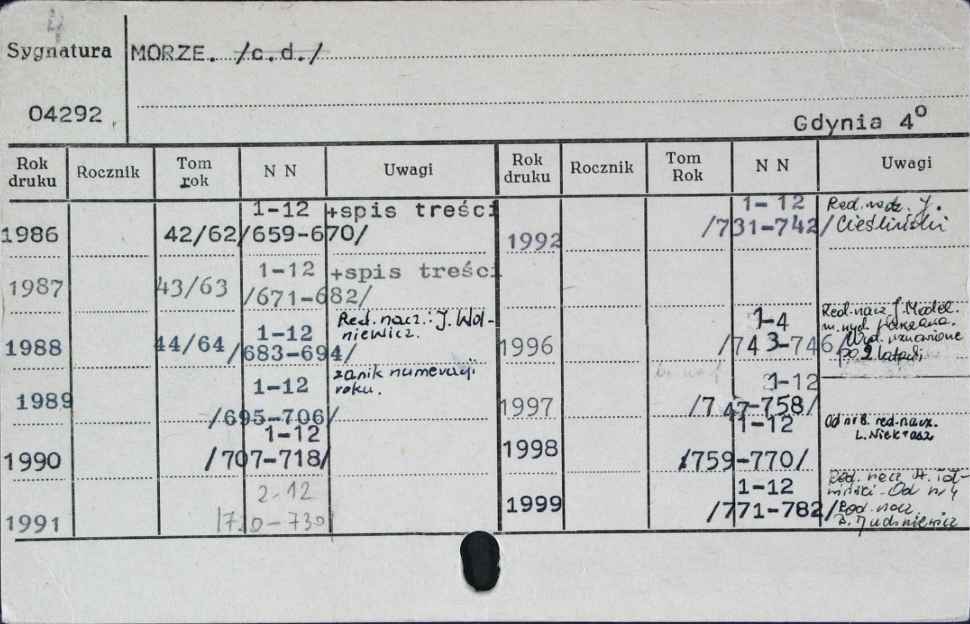 4
Sygnatura MORZE. /c.d./
04292
Gdynia 4º
Rok druku Rocznik Tom rok N N Uwagi Rok druku Rocznik Tom Rok N N Uwagi
1986 42/62 1-12 /659-670/ +spis treści
1987 43/63 1-12 /671-682/ +spis treści
1988 44/64 1-12 /683-694/ Red. nacz.: J. Wol-
niewicz.
1989 1-12 /695-706/ zanik numeracji
roku.
1990 1-12 /707-718/
1991 2-12 /720-730/
1992 1-12 /731-742/ Red. nacz. J.
Cieśliński
1996 1-4 /743-746 Red. nacz. J.
Wyd. wznowione
po 2 latach
1997 3-12 /747-758/
1998 1-12 /759-770/ Od nr 8. red. nacz.
L. Niekrasz
1999 1-12 /771-782/ Red. nacz. A.
Od nr 4
Red. nacz.